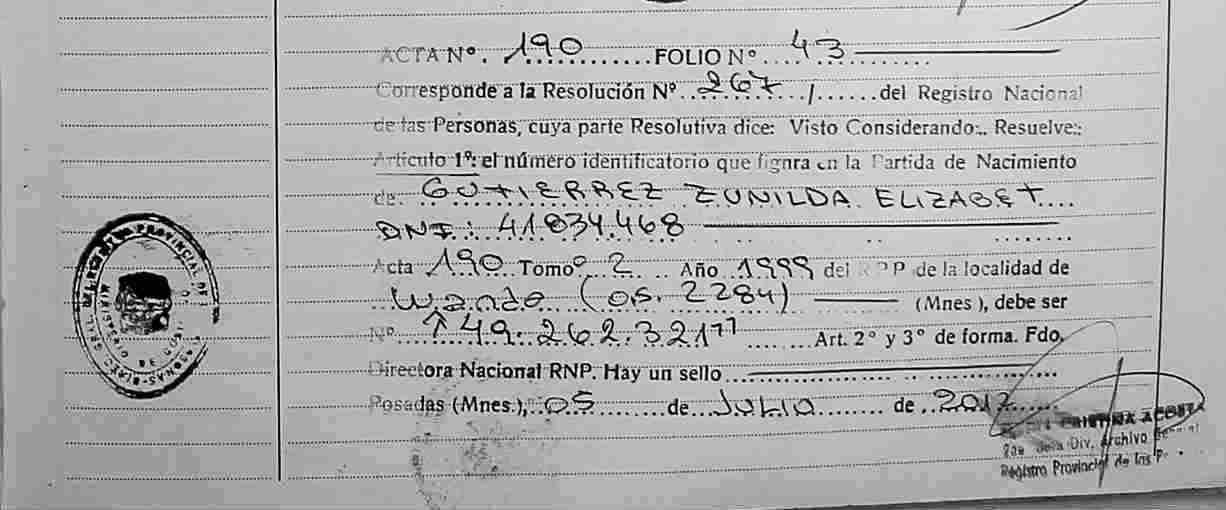 ACTA Nº. 190 FOLIO Nº 43
Corresponde a la Resolución Nº 267 / del Registro Nacional
de las Personas, cuya parte Resolutiva dice: Visto Considerando:. Resuelve:
Artículo 1º: el número identificatorio que fignra en la Partida de Nacimiento
de. GUTIERREZ ZUNILDA ELIZABET
DNI: 41834.468
Acta 190 Tomo 2 Año 1999 del RPP de la localidad de
Wanda (os. 2284) (Mnes ), debe ser
Nº 49.262.321" Art. 2º y 3º de forma. Fdo.
Directora Nacional RNP. Hay un sello
Posadas (Mnes.), 05 de Julio de 2012
CRISTINA ACOSTA
Div. Archivo
Registro Provincial de las P